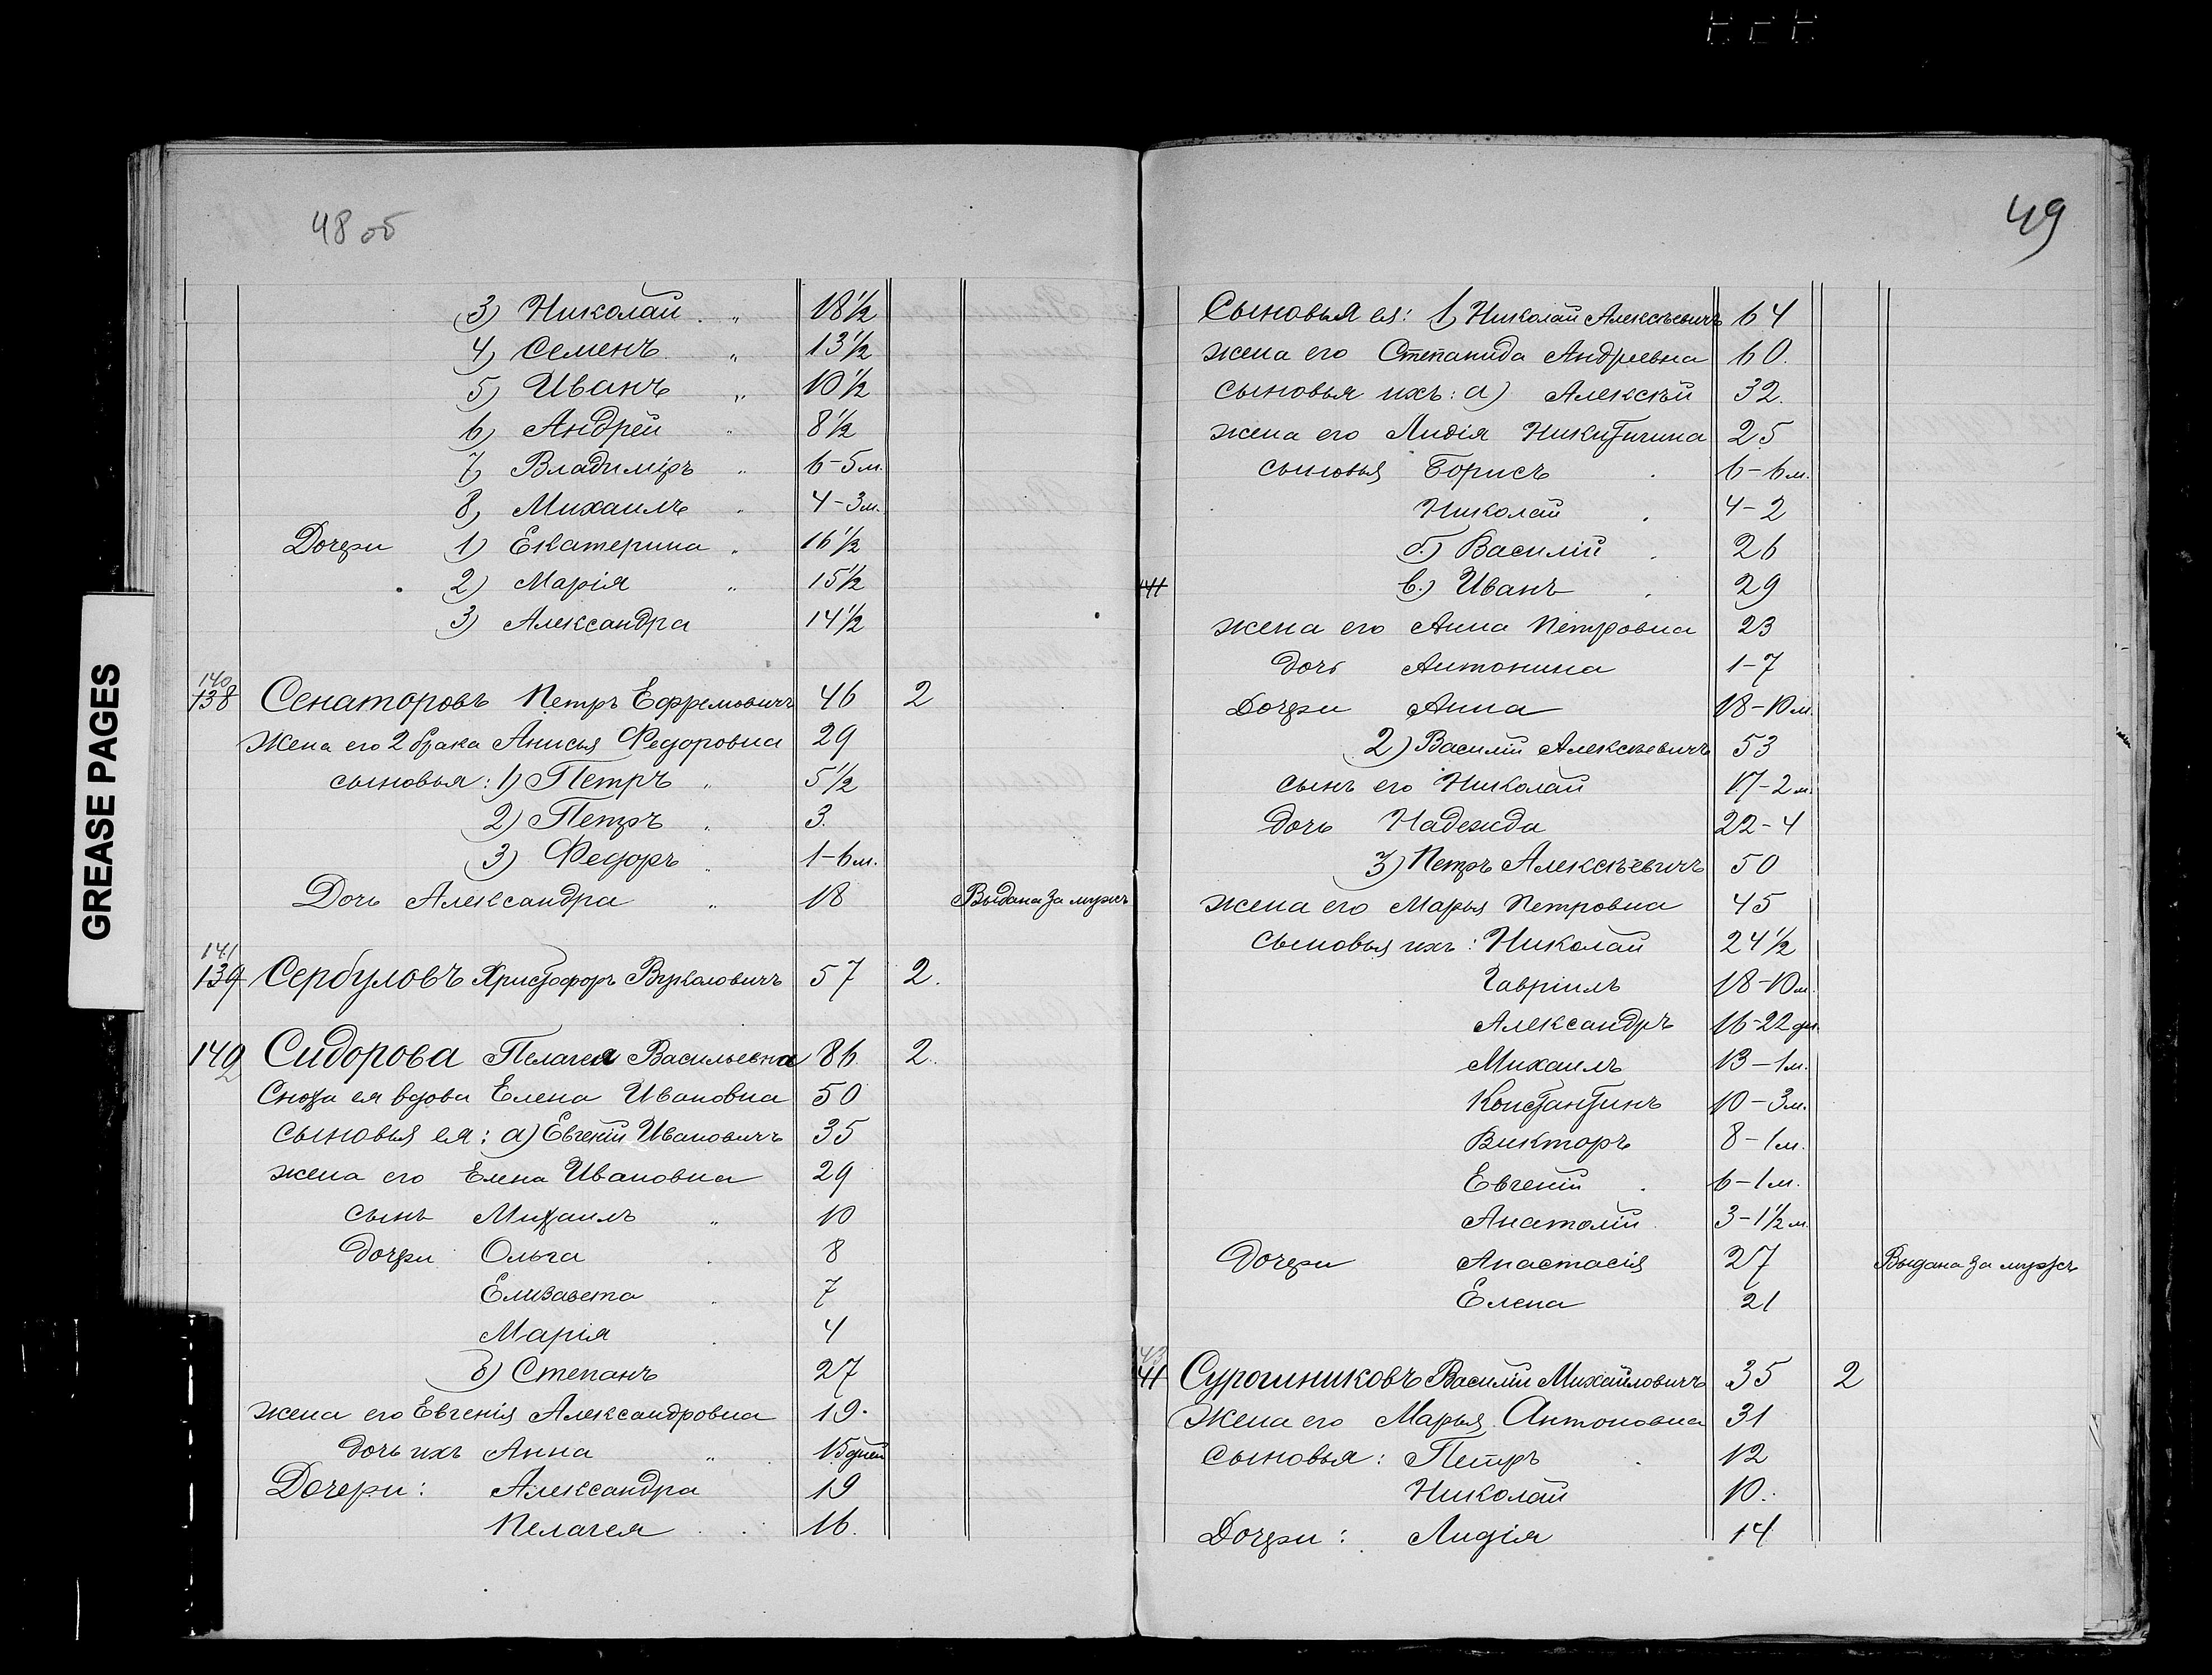 48 об
3) Николай " 18½
4) Семенъ " 13½
5) Иванъ " 10½
6) Андрей " 8½
7) Владиміръ " 6-5м.
8) Михаилъ " 4-3м.
Дочери 1) Екатерина " 16½
2) Марія " 15½
3) Александра 14½
140
138 Сенаторовъ Петръ Ефремовичъ 46 2
Жена его 2 брака Анисья Федоровна 29
сыновья: 1) Петръ " 5½
2) Петръ " 3.
3) Федоръ " 1-6м.
Дочь Александра " 18 Выдана за мужъ
141
139 Сербуловъ Христофоръ 57 2.
140 Сидорова Пелагея Васильевна 86 2.
2
Сноха ея вдова Елена Ивановна 50
сыновья ея: а) Евгеній Ивановичъ 35
жена его Елена Ивановна 29
сынъ Михаилъ " 10
дочери Ольга 8
Елизавета 7
Марія 4
б) Степанъ 27
жена его Евгенія Александровна 19.
дочь ихъ Анна " 15 дней
Дочери: Александра 19
Пелагея 16.
GREASE PAGES
49
Сыновья ея: 1) Николай Алексѣевичъ 64
жена его Степанида Андреевна 60.
сыновья ихъ: а) Алексѣй 32.
жена его Лидія Никитична 25
сыновья Борисъ 6-6м.
Николай 4-2
б.) Василій 26
141 в.) Иванъ 29
жена его Анна Петровна 23
дочь Антонина 1-7
Дочери Анна 18-10м.
2) Василій Алексѣевичъ 53
сынъ его Николай 17-2м.
дочь Надежда 22-4
3) Петръ Алексѣевичъ 50
жена его Марья Петровна 45
сыновья ихъ: Николай 24½
Гавріилъ 18-10м.
Александръ 16-22 дн.
Михаилъ 13-1м.
Константинъ 10-3м.
Викторъ 8-1м.
Евгеній 6-1м.
Анатолій 3-1½м.
Дочери Анастасія 27 Выдана за мужъ
Елена 21
43
41 Сурошниковъ Василій Михайловичъ 35 2
Жена его Марья Антоновна 31
сыновья: Петръ 12
Николай 10.
Дочери: Лидія 14